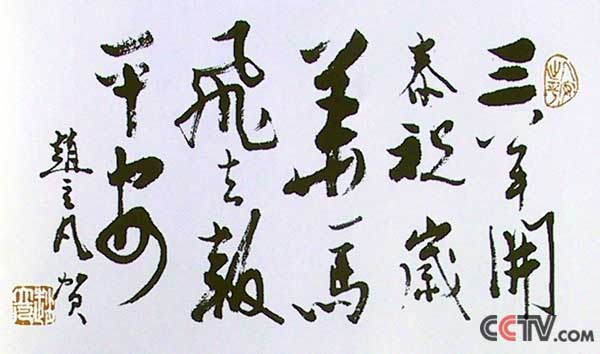 三羊開
泰祝歲
華一馬
飛去報
平安
趙立凡賀
CCTV.com